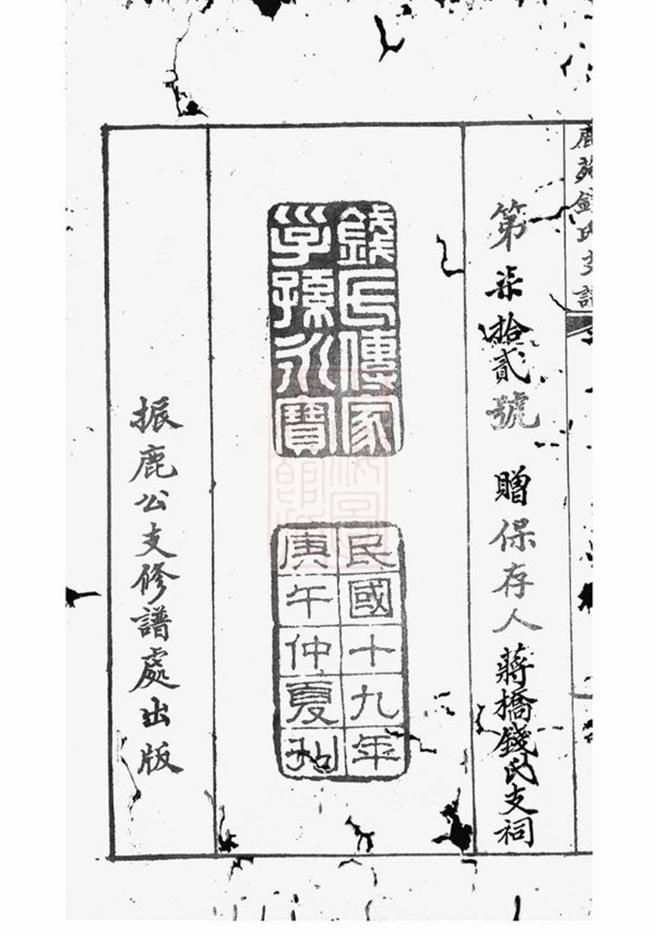 鹿苑錢氏支譜
第柒拾貳號 贈保存人蔣橋錢氏支祠
錢氏傳家
子孫永寶
民國十九年
庚午仲夏刊
振鹿公支修譜處出版